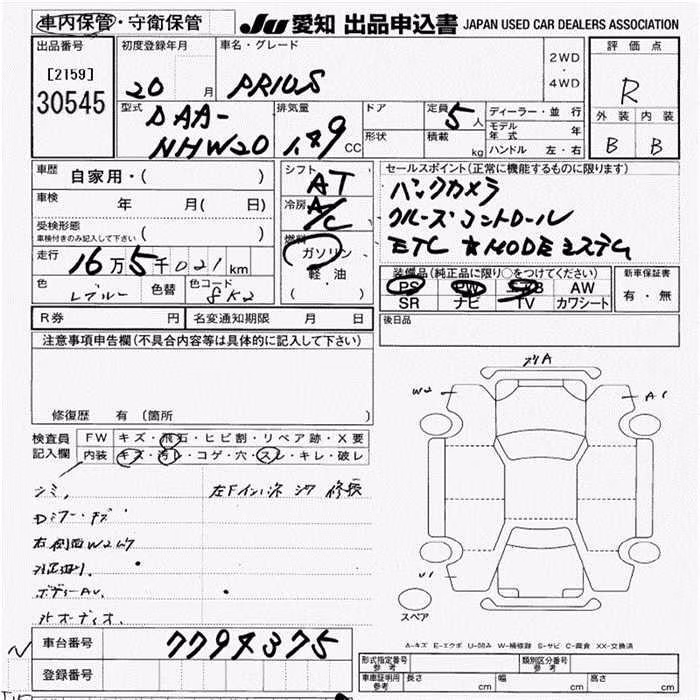 車内保管・守衛保管
JU 愛知 出品申込書 JAPAN USED CAR DEALERS ASSOCIATION
出品番号
[2159]
30545
初度登録年月
20 月
車名・グレード
PRIUS
2WD
・
4WD
評価点
R
外装 内装
B B
型式
DAA-
NHW20
排気量
CC
ドア
形状
定員
5人
積載
kg
ディーラー・並行
モデル年式 年
ハンドル 左・右
車歴
自家用・( )
車検
年 月( 日)
受検形態
車検付きのみ記入して下さい ( )
走行
16万5千021km
色
色替
色コード
8K2
シフト
AT
冷房
A/C
燃料
ガソリン
軽油
( )
セールスポイント(正常に機能するものに限ります)
バックカメラ
クルーズコントロール
ETC
装備品(純正品に限り○をつけてください)
PS PW AW
SR ナビ TV カワシート
新車保証書
有・無
R券 円
名変通知期限 月 日
後日品
注意事項申告欄(不具合内容等は具体的に記入して下さい)
修復歴 有(箇所 )
検査員
記入欄
FW キズ・飛石・ヒビ割・リペア跡・X要
内装 キズ・汚レ・コゲ・穴・スレ・キレ・破レ
シミ,
右側面W2
外オーディオ.
W2
A1
スペア
A-キズ E-エクボ U-凹み W-補修跡 S-サビ C-腐食 XX-交換済
車台番号
登録番号
形式指定番号
参考
類別区分番号
参考
車庫証明用
参考
長さ cm
幅 cm
高さ cm